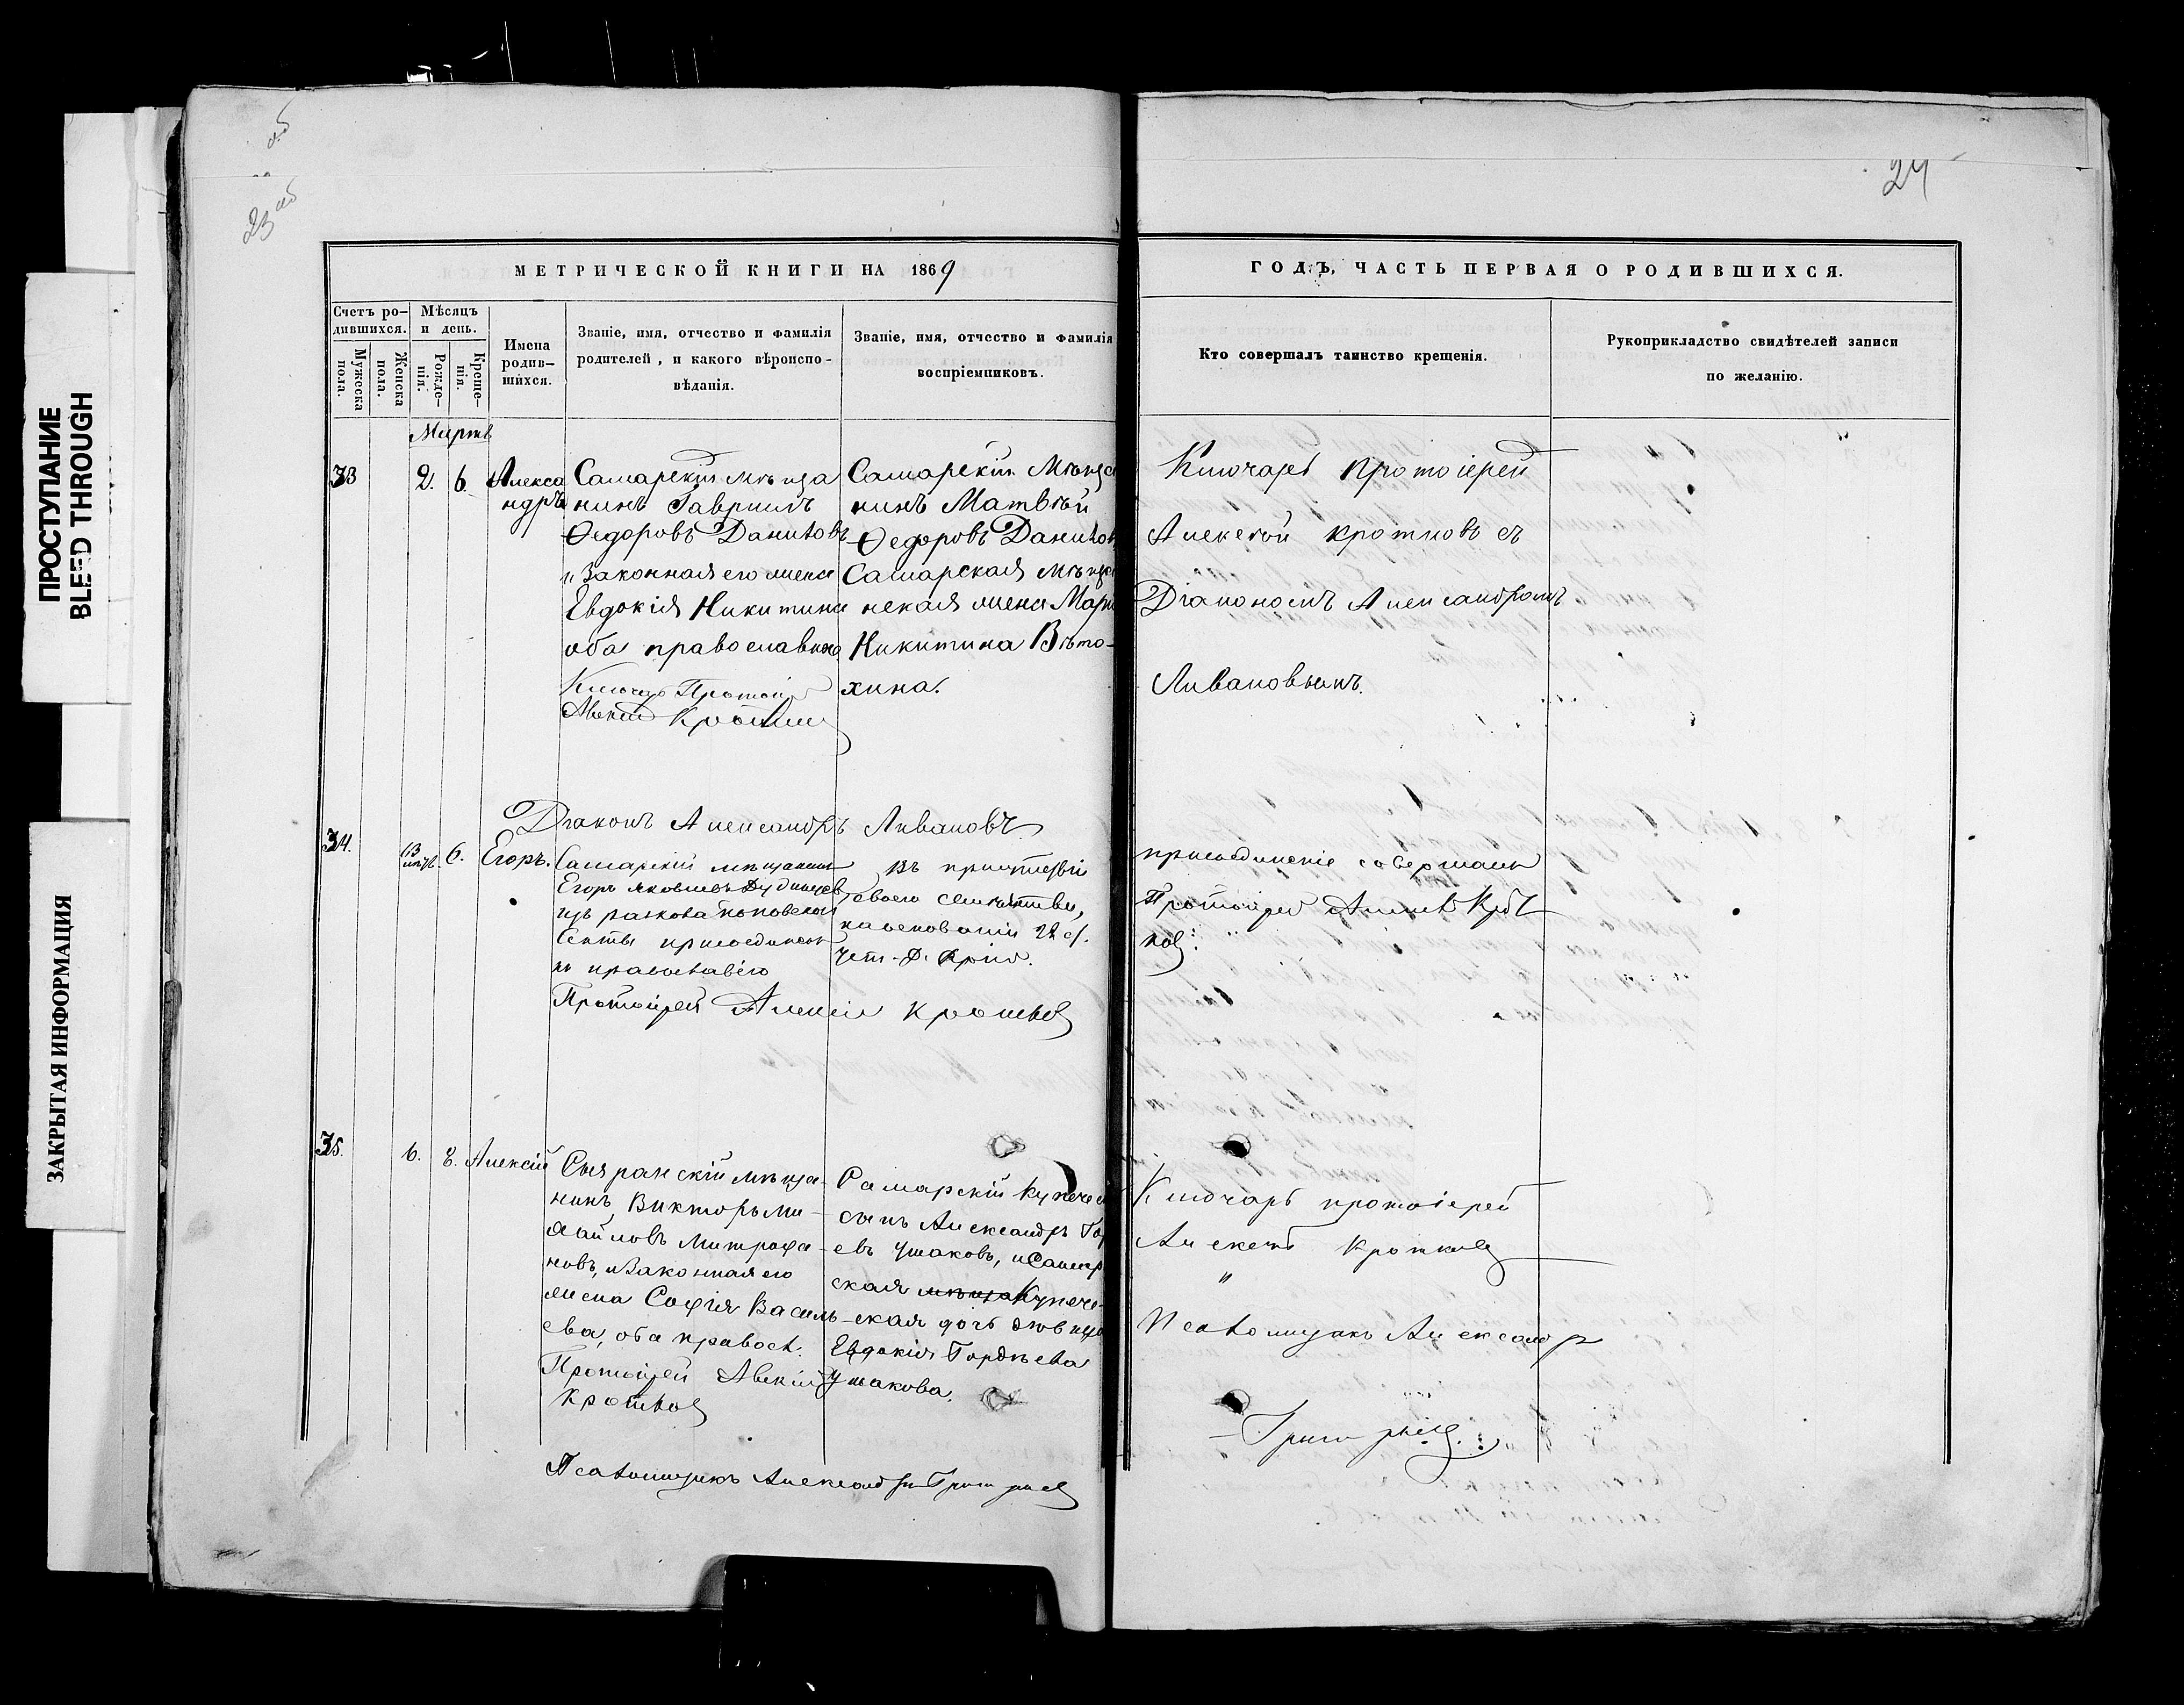 23 об
24
МЕТРИЧЕСКОЙ КНИГИ НА 1869
ГОДЪ, ЧАСТЬ ПЕРВАЯ О РОДИВШИХСЯ.
Счетъ ро-
дившихся.
Мужеска
пола.
Женска
пола.
Мѣсяцъ
и день.
Рожде-
нія.
Креще-
нія.
Имена
родив-
шихся.
Званіе, имя, отчество и фамилія
родителей, и какого вѣроиспо-
вѣданія.
Званіе, имя, отчество и фамилія
воспріемниковъ.
Кто совершалъ таинство крещенія.
Рукоприкладство свидѣтелей записи
по желанію.
Мартъ
33
2.
6.
Алекса
ндръ
Самарскій мѣща
нинъ Гавріилъ
Ѳедоровъ Даниловъ
и законная его жена
Евдокія Никитина
оба православнаго
Ключарь Протоіер
Алексій Кротковъ
Самарскій Мѣща
нинъ Матвѣй
Ѳедоровъ Данилов
Самарская мѣща
нская жена Мар
Никитина Вѣто-
хина.
Ключарь Протоіерей
Алексѣй Кротковъ съ
Діакономъ Александромъ
Ливановымъ.
Діаконъ Александръ Ливановъ
34.
13
6.
Егоръ.
Самарскій мѣщанинъ
Егоръ Яковлевъ
изъ раскола поповской
секты присоединенъ
къ православію
Протоіерей Алексій Кротковъ
въ присутствіи
своего семейства,
на основаніи 22 ст.
присоединеніе совершалъ
Протоіерей Алексій Крот
ковъ
35.
6.
8.
Алексій
Сызранскій мѣща-
нинъ, Викторъ Ми-
хайловъ Митрофа-
новъ, и законная его
жена Софія Василь-
ева, оба правосл.
Протоіерей Алексій
Кротковъ
Самарскій купече
сынъ Александръ Гор
евъ Ушаковъ, и Самар
ская мѣща Купече-
ская дочь дѣвица
Евдокія Гордѣева
Ушакова.
Ключарь протоіерей
Алексѣй Кротковъ
"
Псаломщикъ Александр
Григорьевъ
Псаломщикъ Александръ Григорьевъ
ПРОСТУПАНИЕ
BLEED THROUGH
ЗАКРЫТАЯ ИНФОРМАЦИЯ